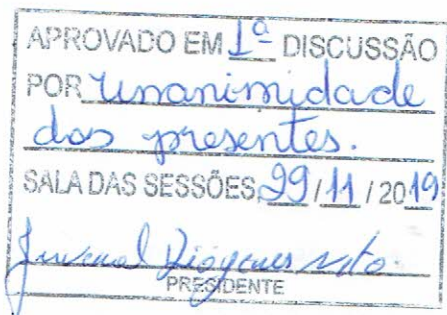 APROVADO EM 1ª DISCUSSÃO
POR unanimidade
dos presentes.
SALA DAS SESSÕES, 29/11/2019.
Juvenal Diógenes Neto.
PRESIDENTE